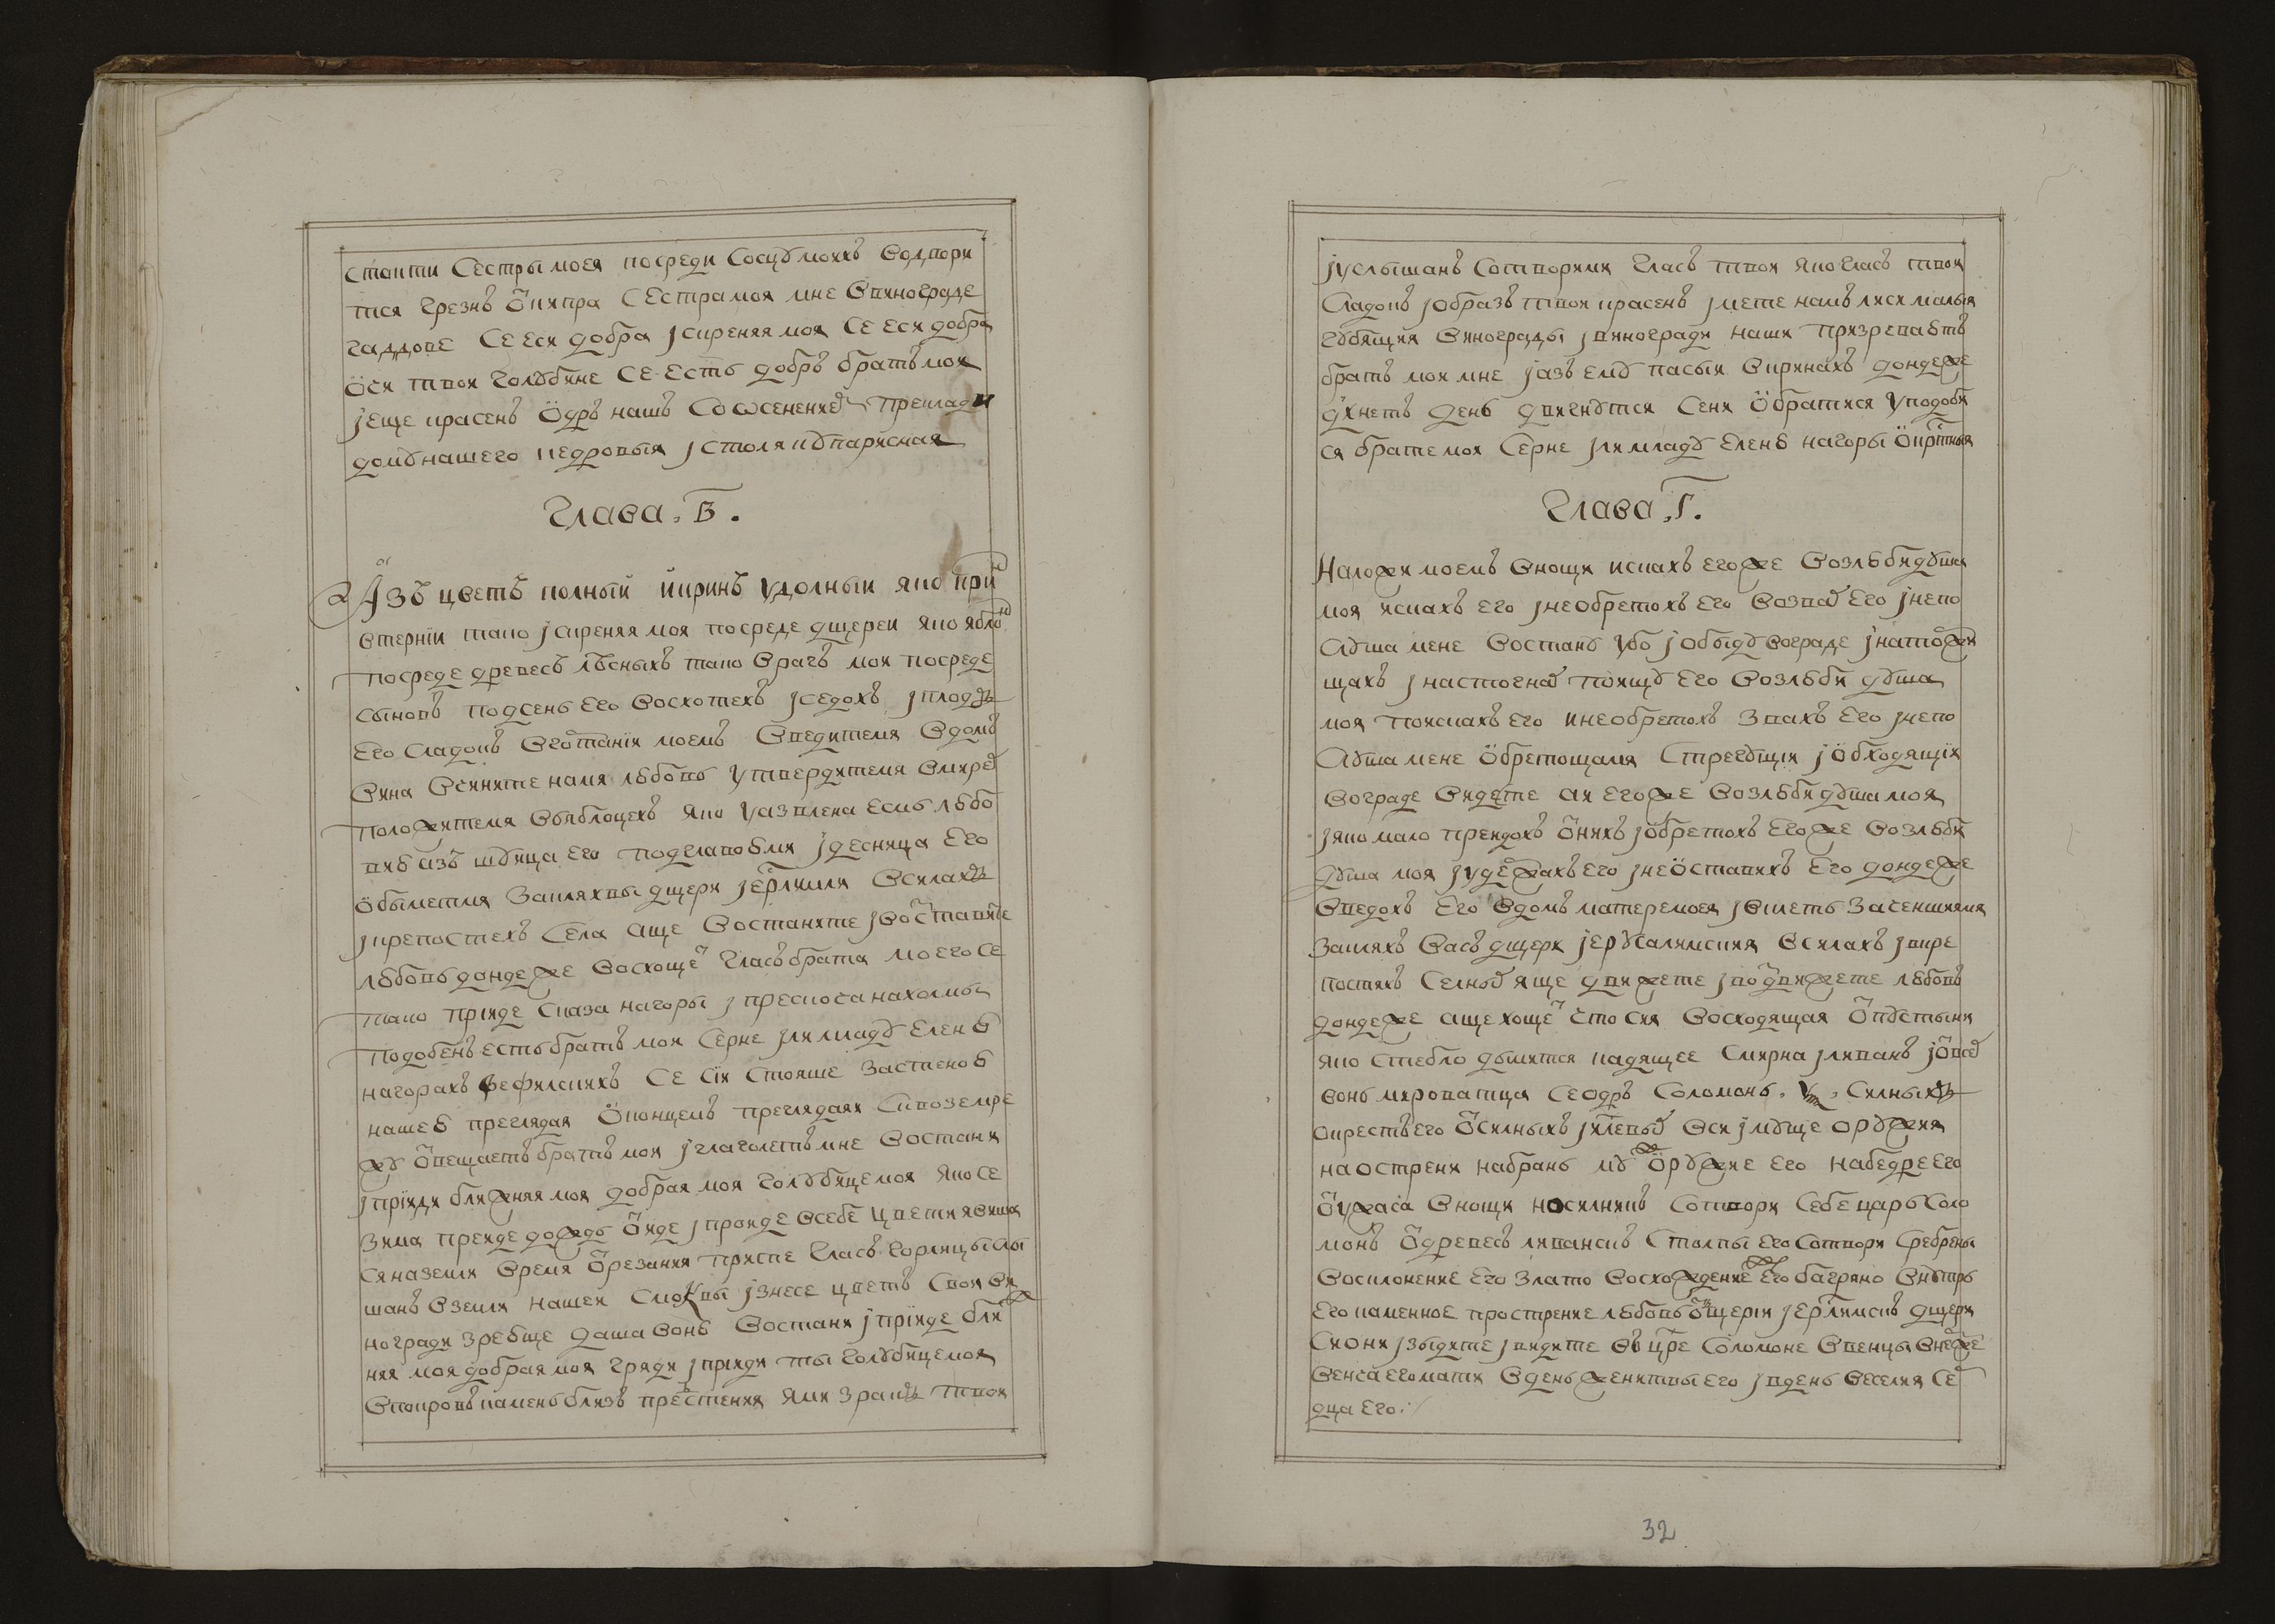 стакти Сестры моея посреди Сосцу моихъ Водвори
тся Грезнъ Ѿкипра СЕстра моя мне Ввинограде
гаддове СЕ еси добра јскреняя моя СЕ еси добра
Ѻчи твои голубине СЕ Есть добръ братъ мой
јеще красенъ Ѻдръ нашъ Со ѡсенениеᵐ Преклади
дому нашего кедровыя јстоля купарисная
Глава. В҃.
Азъ цветъ полный йкринъ удолныи яко при
втернїи тако јскреняя моя посреде дщереи яко яблоᵏ
посреде древесъ лѣсныхъ тако Врагъ мой посреде
сыновъ подсень его Восхотехъ јседохъ јплодъ
Его Сладокъ Вгортанїи моемъ Введитемя Вдомъ
Вина Вчинитe намя любовь утвердитемя Вмиреˣ
положитемя Въяблоцехъ яко уязвлена есмь любо
вию азъ шуица его подглавою моя јдесница Его
ѻбыметмя Закляхвы дщери јер҃лимля Всилахъ
јкрепостехъ Села аще Востаните јвоⷥставите
любовь дондеже Восхощеᵗ Гласъ брата моего се
тако прїиде Скача нагоры јпрескоча нахолмы
подобенъ есть братъ мой Серне јли младу Еленю
нагорахъ вефилскихъ СЕ Сїи Стояше Застеною
нашею преглядая Ѻконцемъ преглядаяи Сквоземре
жу Ѿвещаетъ братъ мой јглаголетъ мне Востани
јпрїиди ближняя моя добрая моя голубице моя яко се
Зима преиде дождь Ѿиде јпроиде Всебе Цвети явиша
ся наземли Время Ѻрезания приспе Гласъ горлицы слы
шанъ Вземли нашей Смоквы јзнесе цветъ Свой Ви
ногради зреюще даша Воню Востани јпрїиде ближ
няя моя добрая моя гряди јприиди ты голубице моя
Впокровъ камень близъ предстения яви зракъ твой
јуслышанъ Сотворими Гласъ твой яко гласъ твой
Сладокъ јобразъ твой красенъ јмете намъ лиси малыя
губящия Винограды јвиногради наши Призреваютъ
братъ мой мне јазъ ему пасый Вкринахъ дондеже
дхнетъ день двигнутся Сени Ѻбратися уподоби
ся брате мой Серне јли младу Еленю нагоры Ѻкрⷭтныя
Глава. Г҃.
Наложи моемъ Внощи искахъ егоже Возлюби душа
моя искахъ его јнеобретохъ Его Возваˣ Его јнепо
слуша мене Востану убо јобыду вограде јнаторжи
щахъ јнастогнаˣ поищу Его Возлюби душа
моя Поискахъ Его инеобретохъ Звахъ Его јнепо
слуша мене Ѻбретоща мя Стрегущии јѻбходящїи
Вограде Видете ли егоже Возлюби душа моя
јяко мало преидохъ Ѿнихъ јѻбретохъ Егоже Возлюби
душа моя јудержахъ Его јнеѻставихъ Его дондеже
Введохъ Его Вдомъ матере моея јвклеть Заченшиямя
Закляхъ Васъ дщери јерусалимския Всилахъ јвкре
постяхъ Селныˣ аще движете јвоⷥдвижете любовь
дондеже аще хощеᵗ Кто Сия Восходящая Ѿпустыни
яко стебло дымится кадящее Смирна јливанъ јѿвсеˣ
вонь мироватица Сеодръ Соломонь. Ѯ. Силныхъ
окрестъ его Ѿсилныхъ јиⷥлевыˣ Вси јмуще оружия
наострени набрань муж Ѻружие Его набедре Его
Ѿужаса Внощи носилникъ Сотвори Себе царь Соло
монъ Ѿдревесъ ливанскъ Столпы его Сотвори Сребрены
Восклонение Его Злато Восхождение Его багряно Внутрь
Его каменное прострение любовь ѿдщерїи јер҃лимскъ дщери
Сиони јзыдите јвидите въ цр҃е Соломоне Ввенцы Внеже
Венча его мати Вдень женитвы его јвдень Веселия Сеᵖ
дца Его.
32